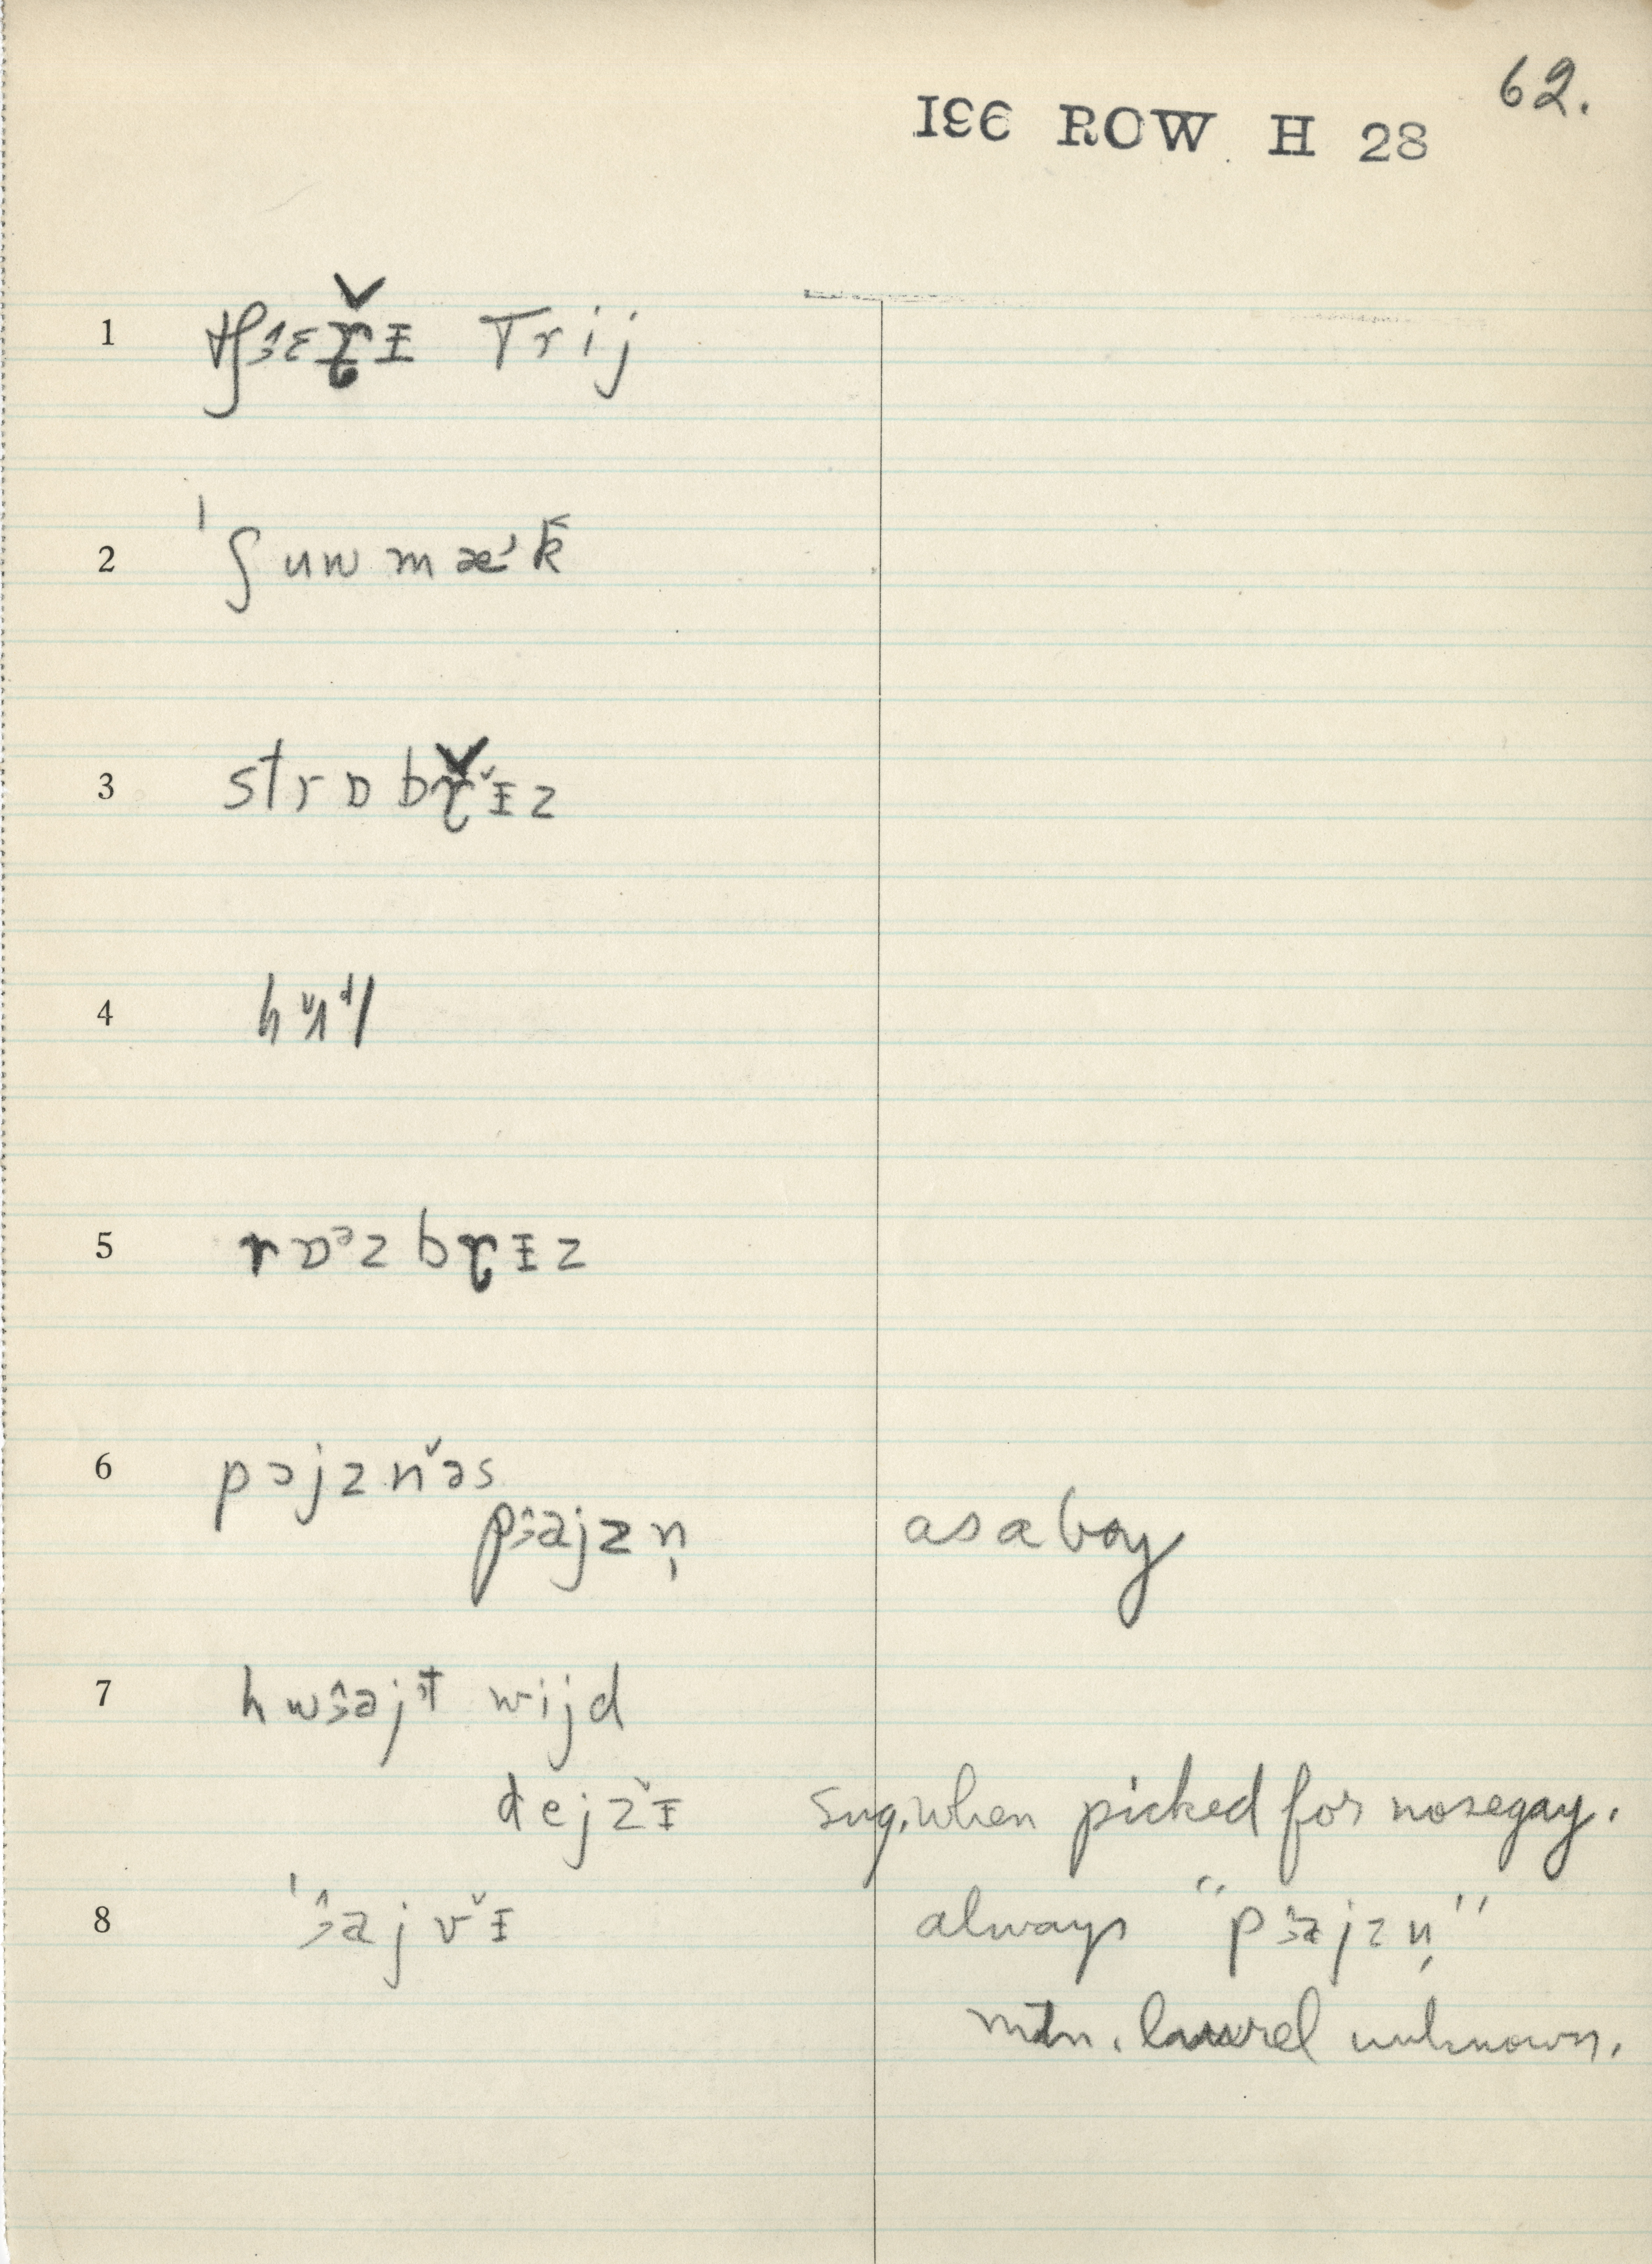 62.
I66 ROW H 28
1 tʃɜ̂ɛɽ̌ɪ Trij
2 ˈʃuwmæˈk
3 strɒbɽ̌ɪz
4
5 rɒᵊz bɽɪz
6 pɔjzn̆əs
pɜ̂ajzṇ as a boy
7 hwɜ̂ajt wijd
dejz̆ɪ sug. when picked for nosegay.
8 ˈɜ̂ajv̆ɪ always "pɜ̂ajzṇ"
mtn. laurel unknown.